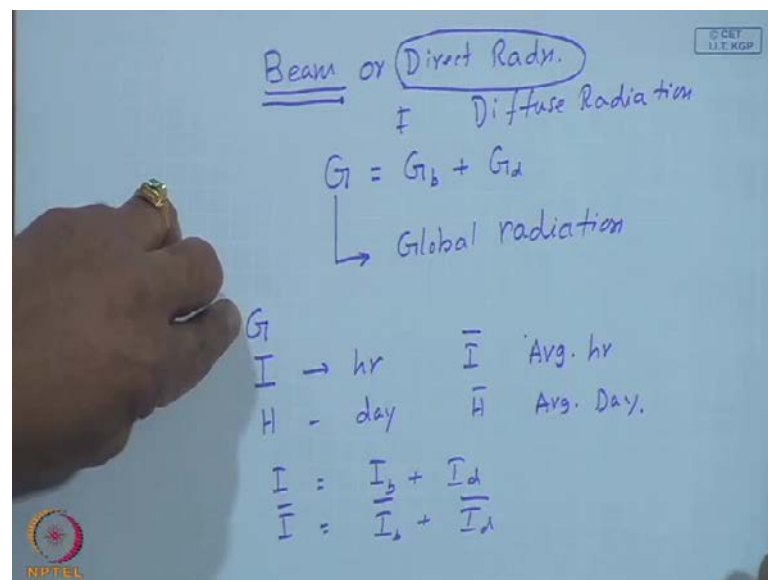 © CET
I.I.T. KGP
Beam or Direct Radn.
I Diffuse Radiation
G = G_b + G_d
Global radiation
G
I → hr Ī Avg. hr
H - day H̄ Avg. Day.
I = I_b + I_d
Ī = Ī_b + Ī_d
NPTEL